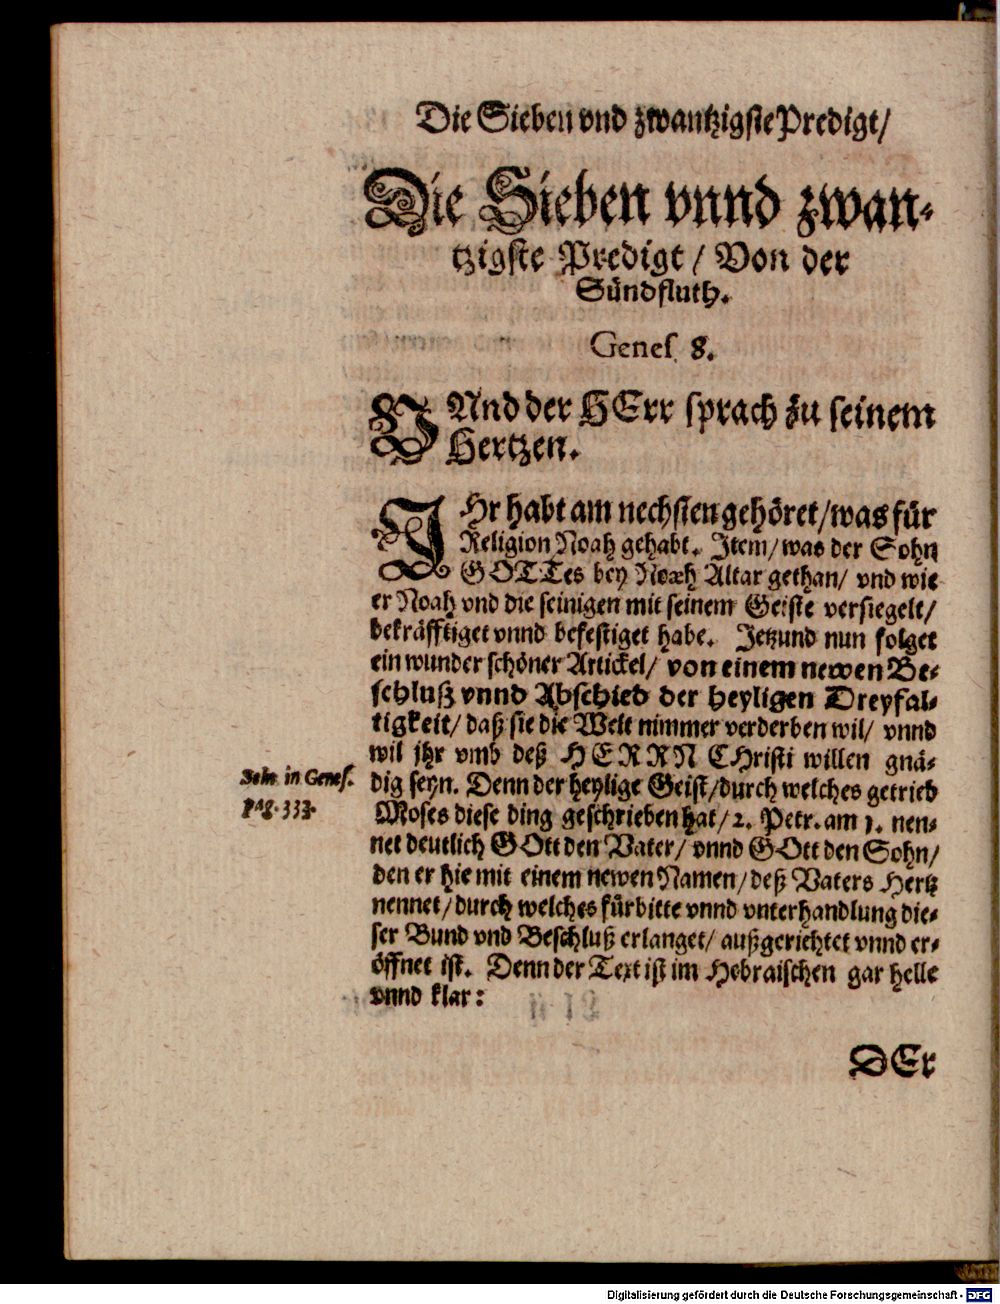 Die Sieben vnd zwantzigste Predigt/
Die Sieben vnnd zwan-
tzigste Predigt / Von der
Sündfluth.
Genes. 8.
VNnd der HErr sprach zu seinem
Hertzen.
IHr habt am nechsten gehöret/was für
Religion Noah gehabt. Item/was der Sohn
GOTTes bey Noæh Altar gethan/ vnd wie
er Noah vnd die seinigen mit seinem Geiste versiegelt/
bekräfftiget vnnd befestiget habe. Jetzund nun folget
ein wunder schöner Artickel/ von einem newen Be-
schluß vnnd Abschied der heyligen Dreyfal-
tigkeit/ daß sie die Welt nimmer verderben wil/ vnnd
wil jhr vmb deß HERRN CHristi willen gnä-
dig seyn. Denn der heylige Geist/durch welches getrieb
Moses diese ding geschrieben hat/2. Petr. am 1. nen-
net deutlich GOtt den Vater/ vnnd GOtt den Sohn/
den er hie mit einem newen Namen/deß Vaters Hertz
nennet/durch welches fürbitte vnnd vnterhandlung die-
ser Bund vnd Beschluß erlanget/ außgerichtet vnnd er-
öffnet ist. Denn der Text ist im Hebraischen gar helle
vnnd klar:
in Genes.
pag. 333.
DEr
Digitalisierung gefördert durch die Deutsche Forschungsgemeinschaft - DFG